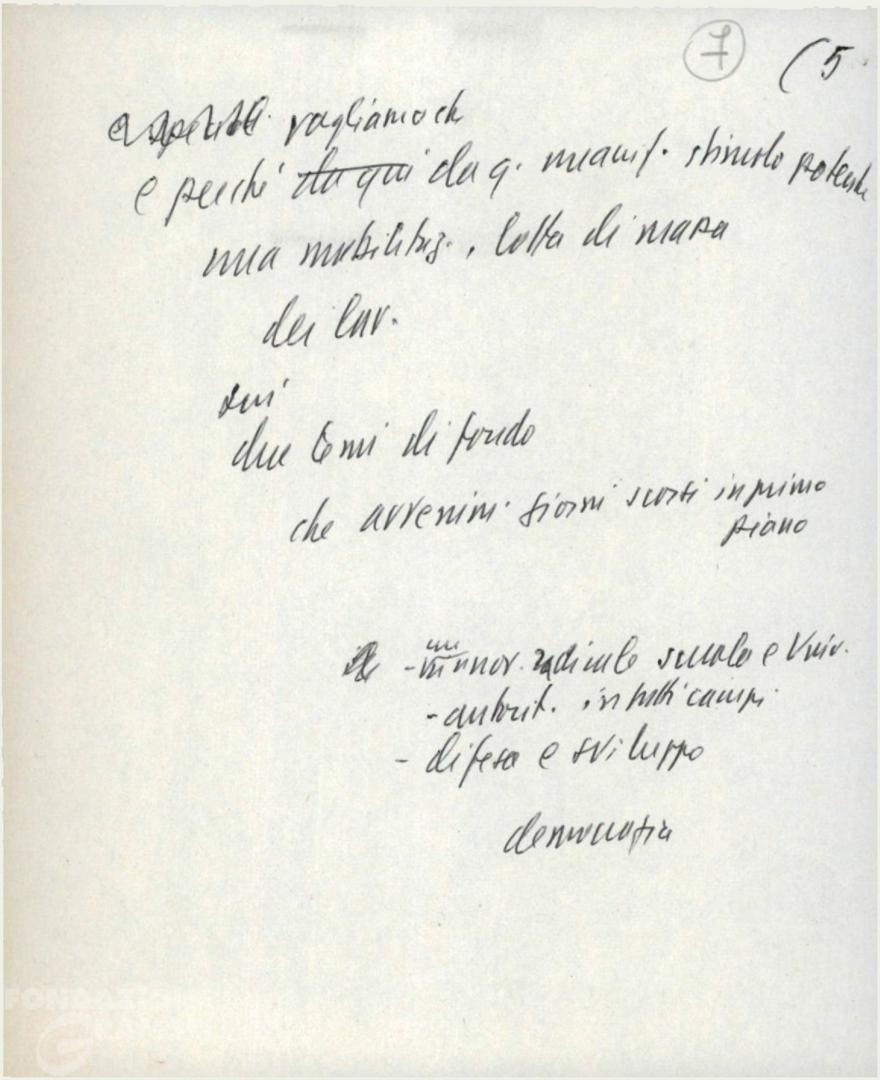 7 (5
vogliamo ch
e perché da qui da q. manif. stimolo potente
una mobilitaz., lotta di massa
dei lav.
sui
due temi di fondo
che avvenim. giorni scorsi in primo
piano
- un
rinnov. radicale scuola e Univ.
- autorit. in tutti campi
- difesa e sviluppo
democrazia
FONDAZIONE
GRAMSCI